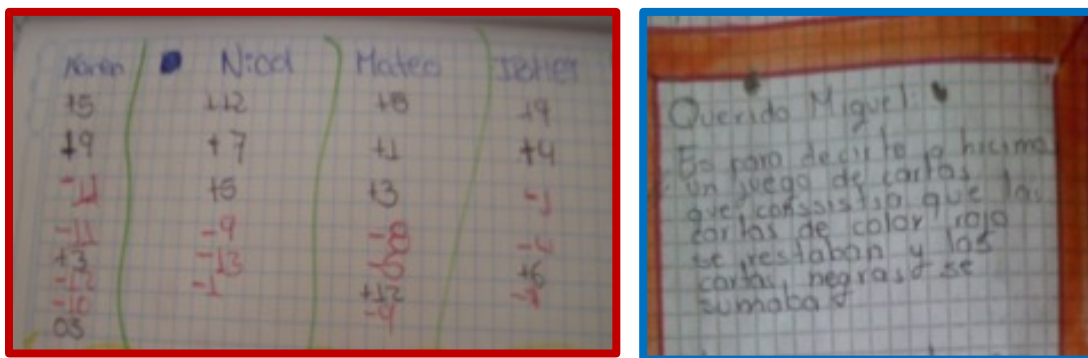 Karen Nicol Mateo
+5 +12 +8
+9 +7 +1 +4
-11 +5 +3 -1
-11 -9 -8
+3 -13
-12 -1 +12 +6
-9
Querido Miguel:
Es para decirte q hicimo
un juego de cartas
que conssistia que las
cartas de color rojo
se restaban y las
cartas negras se
sumaba